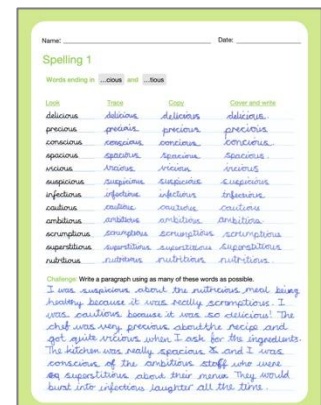 Name: Date:
Spelling 1
Words ending in ...cious and ...tious
Look Trace Copy Cover and write
delicious delicious delicious delicious
precious precious precious precious
conscious conscious concious concious
spacious spacious spacious spacious
vicious vicious vicious vicious
suspicious suspicious suspicious suspicious
infectious infectious infectious infectious
cautious cautious cautious cautious
ambitious ambitious ambitious ambitions
scrumptious scrumptious scrumptious scrumptious
superstitious superstitious superstitious superstitious
nutritious nutritious nutritious nutritious
Challenge: Write a paragraph using as many of these words as possible.
I was suspicious about the nutricious meal being
healthy because it was really scrumptious. I
was cautious because it was so delicious! The
chef was very precious about the recipe and
got quite vicious when I ask for the ingredients.
The kitchen was really spacious & and I was
conscious of the ambitious staff who were
superstitious about their menus. They would
burst into infectious laughter all the time.